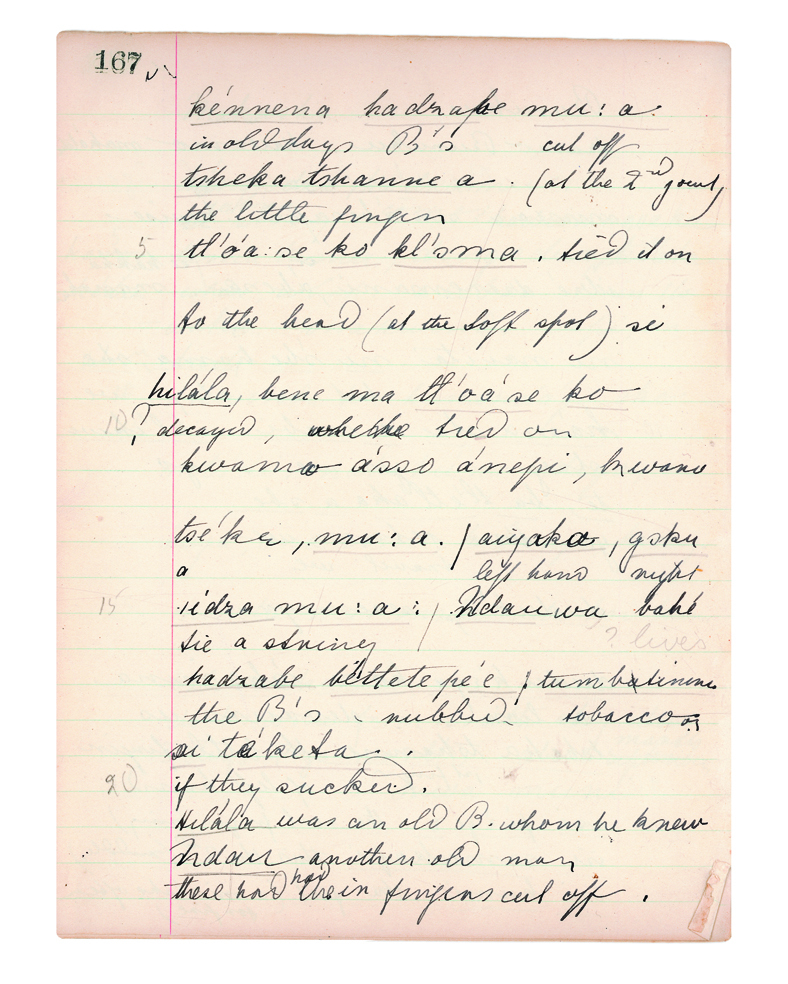 167
kénnena hadzabe mu: a.
in old days B's cut off
tsheka tshanne a. (at the 2nd joint)
the little finger
5 tl'óa: se ko kl'sma. tied it on
to the head (at the soft spot) si
hilála, bene ma tl'oá'se ko
10 ? decayed, tied on
kwama ásso ánepi, kwana
tséke, mu: a. / aiyaka, gsku
a left hand right
15 iédza mu: a: / Ndau wa bahé
tie a string ? lives
hadzabe béttete pé'e / tumbatinina
the B's rubbed tobacco on
si táketa.
20 if they sucked.
Hilála was an old B. whom he knew
Ndau another old man
these had had their fingers cut off.